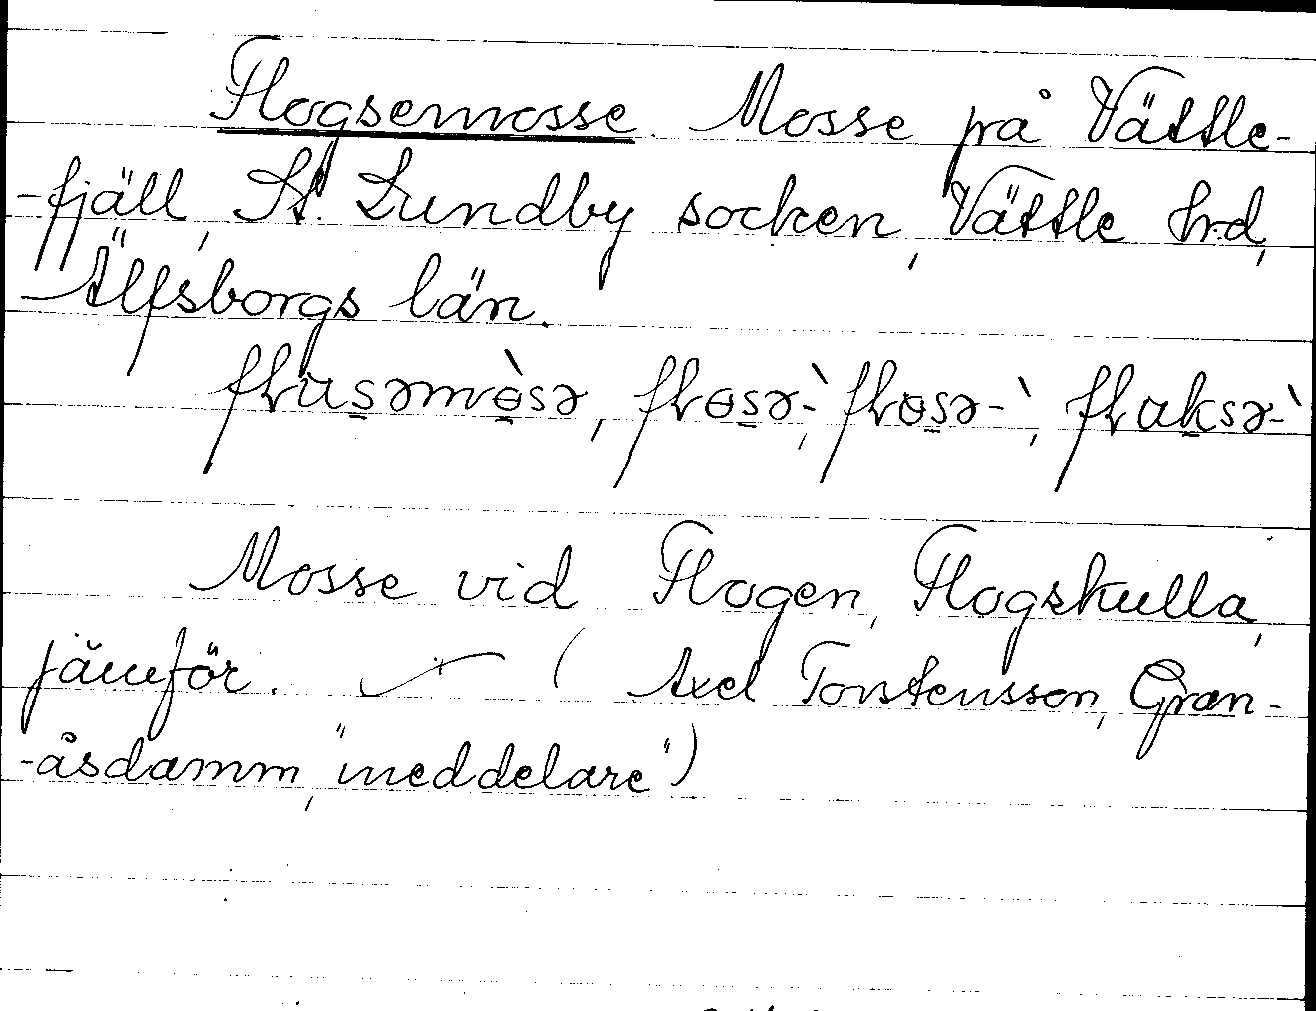 Flogsemosse. Mosse på Vättle-
-fjäll, St. Lundby socken, Vättle hrd,
Älfsborgs län.
fLusəmòsə, fLɵsə-̀, fLɵsə-̀, fLaksə-̀
Mosse vid Flogen, Flogskulla,
jämför. (Axel Torstensson, Gran-
-åsdamm, "meddelare")